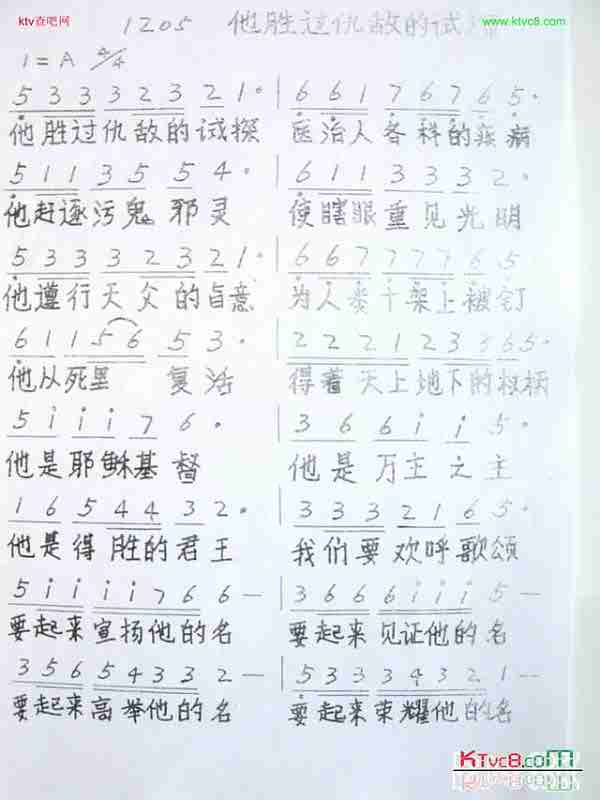 ktv查吧网
KTVC8.COM
www.ktvc8.com
1205 他胜过仇敌的试
1=A 4/4
5 3 3 3 2 3 2 1 · | 6 6 1 7 6 7 6 5 ·
他胜过仇敌的试探 医治人各科的疾病
5 1 1 3 5 5 4 · | 6 1 1 3 3 3 2 ·
他赶逐污鬼 邪灵 使瞎眼重见光明
5 3 3 3 2 3 2 1 · | 6 6 7 7 7 7 6 5
他遵行天父的旨意 为人类十架上被钉
6 1 1 5 6 5 3 · | 2 2 2 1 2 3 3 6 5 ·
他从死里 复活 得着天上地下的权柄
5 i i i 7 6 · | 3 6 6 i i 5 ·
他是耶稣基督 他是万主之主
1 6 5 4 4 3 2 · | 3 3 3 2 1 6 5 ·
他是得胜的君王 我们要欢呼歌颂
5 i i i i 7 6 6 — | 3 6 6 6 i i i 5 —
要起来宣扬他的名 要起来见证他的名
3 5 6 5 4 3 3 2 — | 5 3 3 3 4 3 2 1 —
要起来高举他的名 要起来荣耀他的名
KTvc8.com